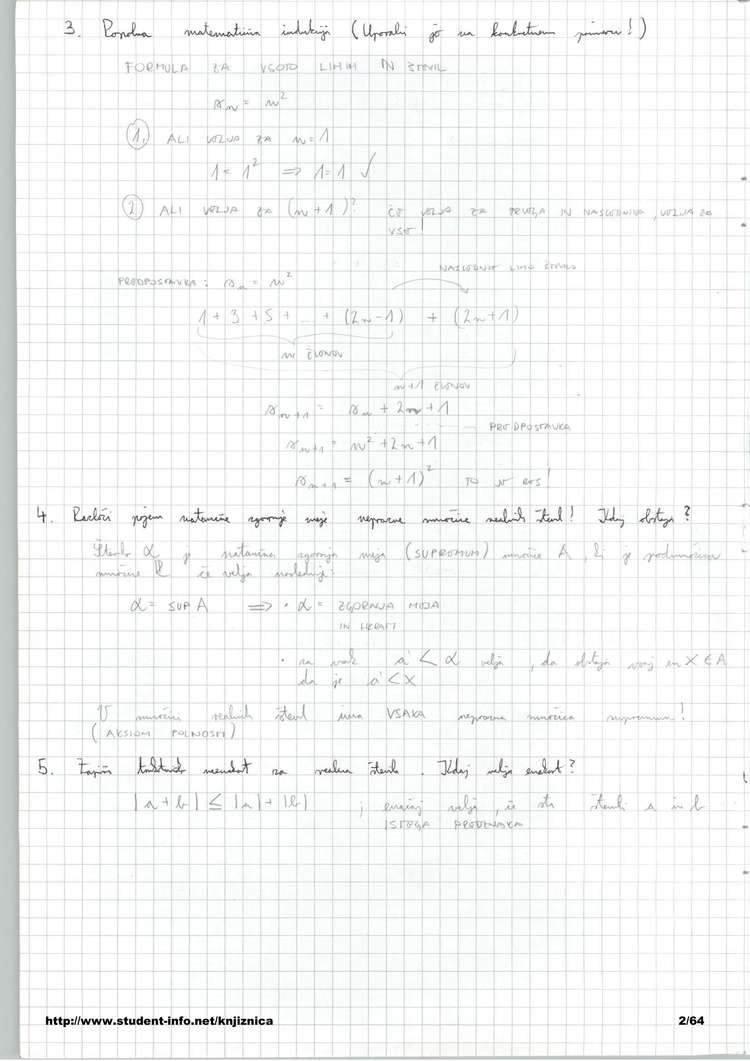 3. Popolna matematična indukcija (Uporabi jo na konkretnem primeru!)
FORMULA ZA VSOTO LIHIH IN ŠTEVIL
sₙ = n²
1. ALI VELJA ZA n = 1
1 = 1² ⇒ 1 = 1 ✓
2 ALI VELJA ZA (n+1)? ČE VELJA ZA PRVEGA IN NASLEDNIKA, VELJA ZA
VSE!
NASLEDNJE LIHO ŠTEVILO
PREDPOSTAVKA: sₙ = n²
1 + 3 + 5 + ... + (2n-1) + (2n+1)
n ČLENOV
n+1 ČLENOV
sₙ₊₁ = sₙ + 2n + 1
PREDPOSTAVKA
sₙ₊₁ = n² + 2n + 1
sₙ₊₁ = (n+1)² TO JE RES!
4. Razloži pojem natančne zgornje meje neprazne množice realnih števil! Kdaj obstaja?
Število α je natančna zgornja meja (SUPREMUM) množice A, ki je podmnožica
množice ℝ če velja naslednje:
α = SUP A ⇒ • α = ZGORNJA MEJA
IN HKRATI
• za vsak a' < α velja, da obstaja vsaj en X ∈ A
da je a' < X
V množici realnih števil ima VSAKA neprazna množica supremum!
(AKSIOM POLNOSTI)
5. Zapiši trikotniško neenakost za realna števila. Kdaj velja enakost?
|a + b| ≤ |a| + |b| ; enačaj velja, če sta števili a in b
ISTEGA PREDZNAKA
http://www.student-info.net/knjiznica 2/64